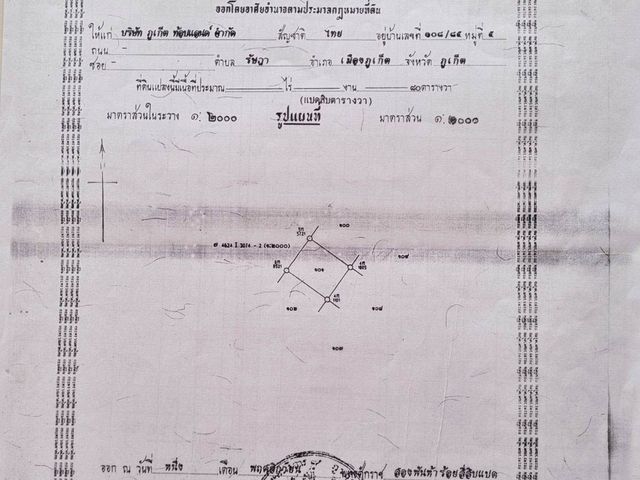 ออกโดยอาศัยอำนาจตามประมวลกฎหมายที่ดิน
ให้แก่ บริษัท ภูเก็ต ท้อปแลนด์ จำกัด สัญชาติ ไทย อยู่บ้านเลขที่ ๑๐๘/๘๔ หมู่ที่ ๕
ถนน -
ซอย - ตำบล รัษฎา อำเภอ เมืองภูเก็ต จังหวัด ภูเก็ต
ที่ดินแปลงนี้มีเนื้อที่ประมาณ ไร่ งาน ๘๐ ตารางวา
(แปดสิบตารางวา)
มาตราส่วนในระวาง ๑: ๒๐๐๐ รูปแผนที่ มาตราส่วน ๑: ๑๐๐๐
๑๐๐
5721
4624 I 3014 - 2 (๑:๒๐๐๐)
๑๐๑
๑๐๒
๑๐๘
๑๐๗
ออก ณ วันที่ หนึ่ง เดือน พฤศจิกายน พุทธศักราช สองพันห้าร้อยสี่สิบแปด